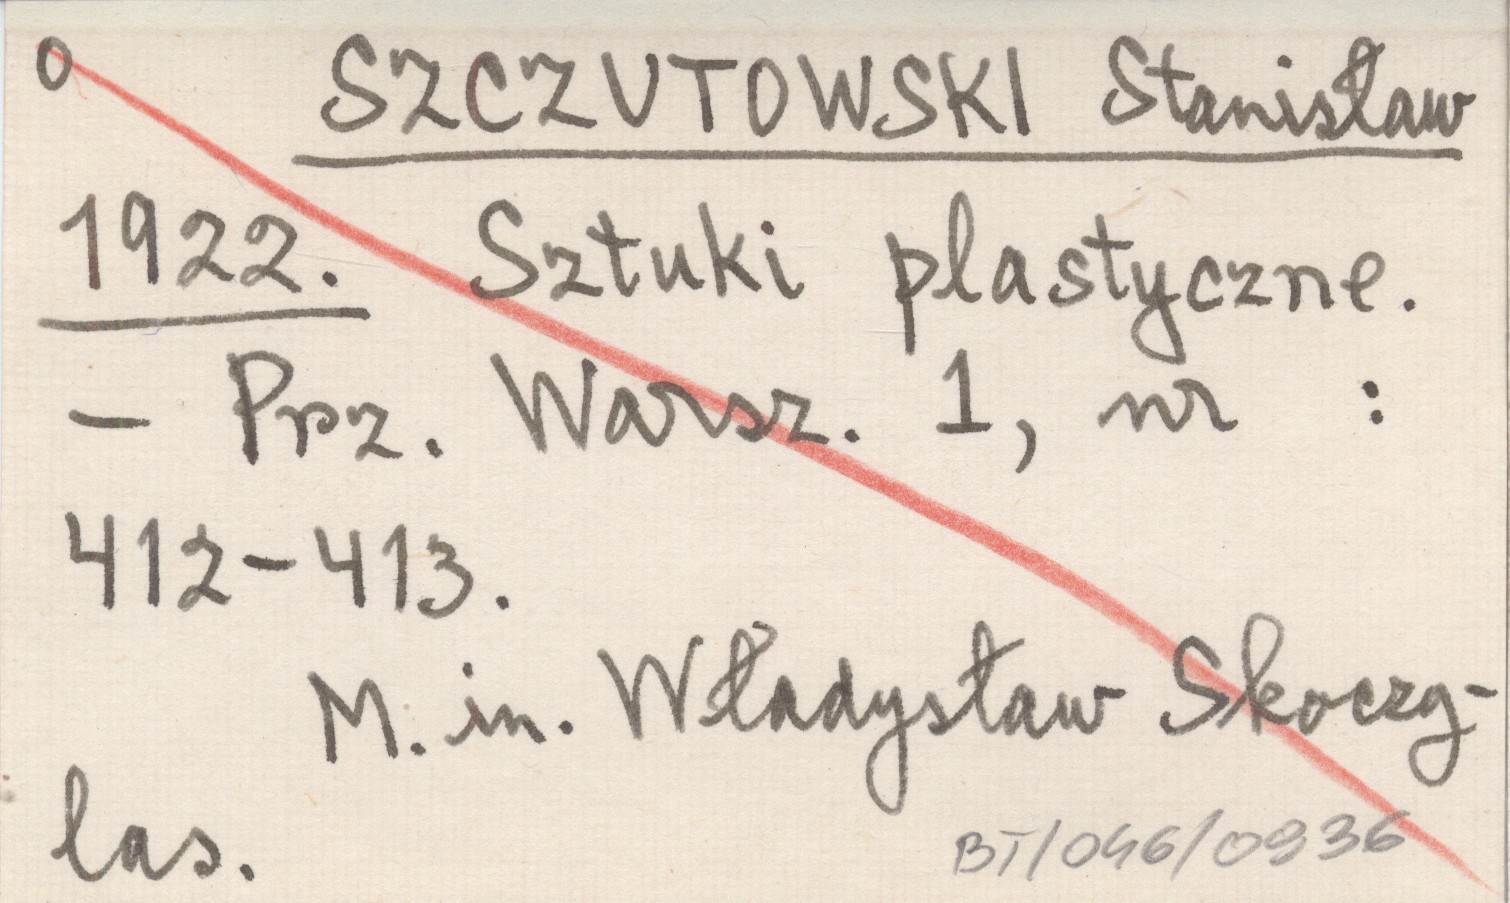 o SZCZUTOWSKI Stanisław
1922. Sztuki plastyczne.
– Prz. Warsz. 1, nr :
412–413.
M. in. Władysław Skoczy-
las.
BT/046/0936